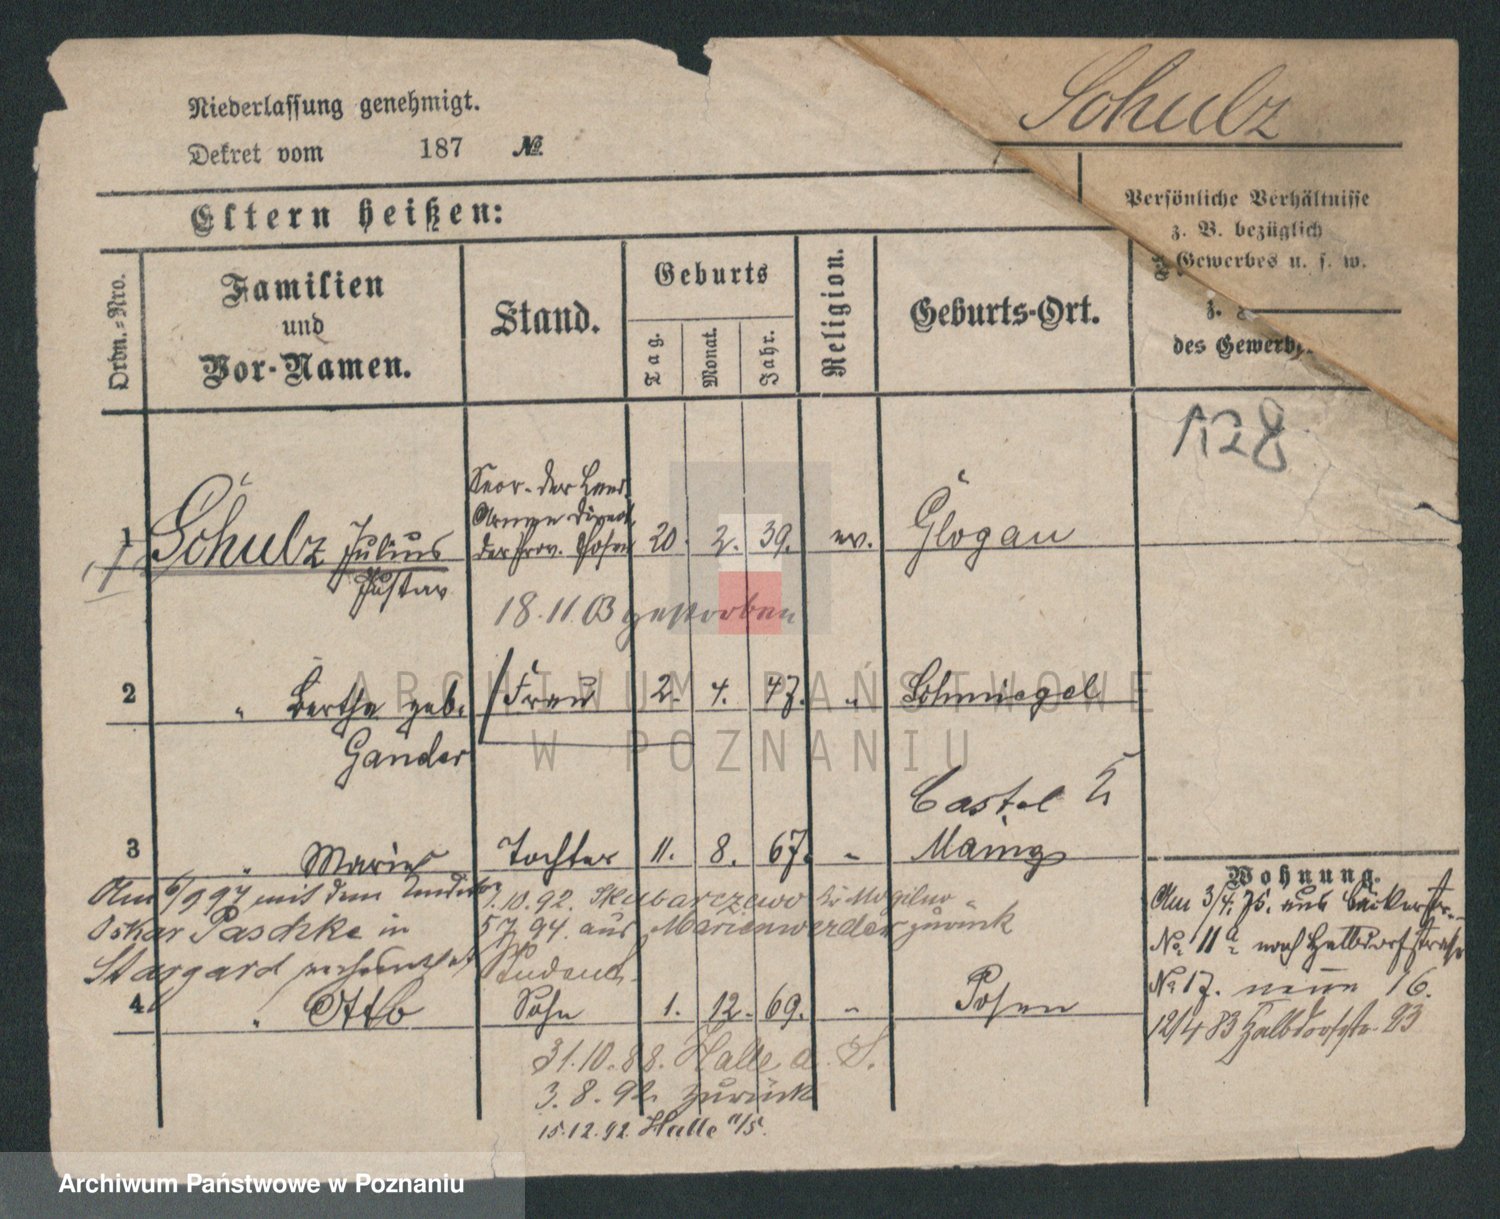 Schulz
Niederlassung genehmigt.
Dekret vom 187 №
Eltern heißen:
Persönliche Verhältnisse
z. B. bezüglich
Gewerbes u. s. w.
Ordn.-Nro.
Familien
und
Vor-Namen.
Stand.
Geburts
Tag.
Monat.
Jahr.
Religion.
Geburts-Ort.
z.
des Gewerb
128
1 Schulz Julius
Gustav
der Prov. Posen 20. 2. 39. ev. Glogau
18.11.03 gestorben
2 " Bertha geb. Frau 2. 4. 47. " Schmiegel
Gander
Castel
3 " Marie Tochter 11. 8. 67. " Mainz
Am 6/9 97 mit dem
Oskar Paschke in
Stargard verheirathet
.10.92. Skubarczewo Mogilno
5 7. 94. aus Marienwerder zurück
Student
4 " Otto Sohn 1. 12. 69. " Posen
31.10.88. Halle a. S.
3. 8. 92. zurück
15.12.92. Halle a/S.
Wohnung.
Am 3/4. 75. aus Bäckerstr.
No. 11a nach Halbdorfstraße
No 17. neue 16.
12/4 83 Halbdorfstr. 23
ARCHIWUM PAŃSTWOWE
W POZNANIU
Archiwum Państwowe w Poznaniu